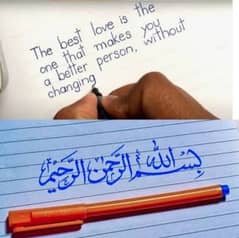 The best love is the
one that makes you
a better person, without
changing
بسم الله الرحمن الرحيم